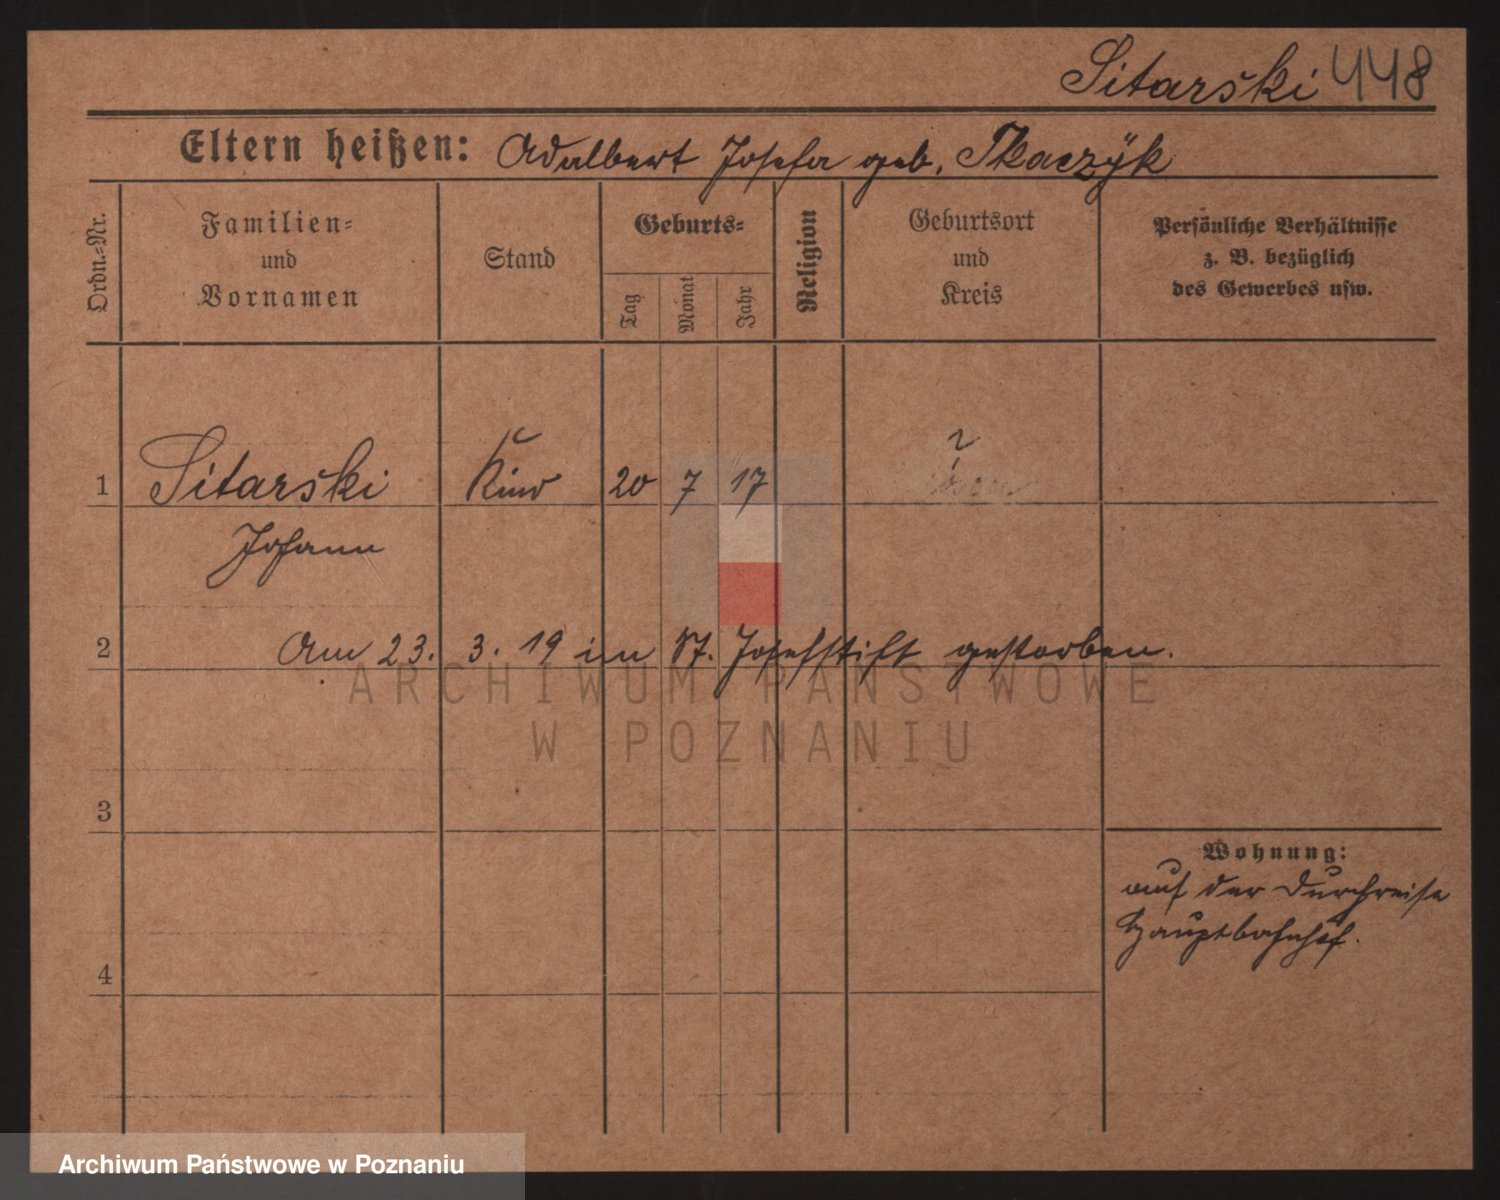 Sitarski 448
Eltern heißen: Adalbert Josefa geb. Tkaczÿk
Ordn.-Nr.
Familien-
und
Vornamen
Stand
Geburts-
Tag
Monat
Jahr
Religion
Geburtsort
und
Kreis
Persönliche Verhältnisse
z. B. bezüglich
des Gewerbes usw.
1 Sitarski Kind 20 7 17 ?
Johann
2 Am 23. 3. 19 im St. Josefstift gestorben.
ARCHIWUM PAŃSTWOWE
W POZNANIU
3
Wohnung:
auf der Durchreise
Hauptbahnhof.
4
Archiwum Państwowe w Poznaniu